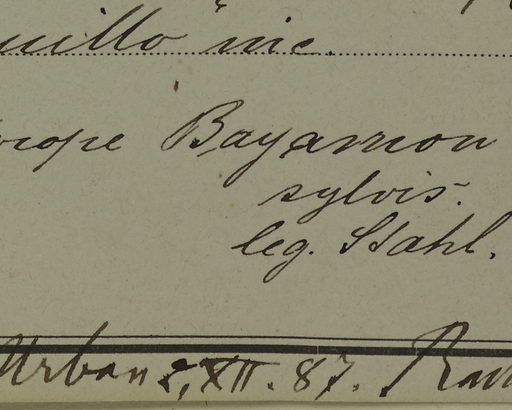 uillo inc.
prope Bayamon
sylvis.
leg. Stahl.
Urban 2, XII. 87.